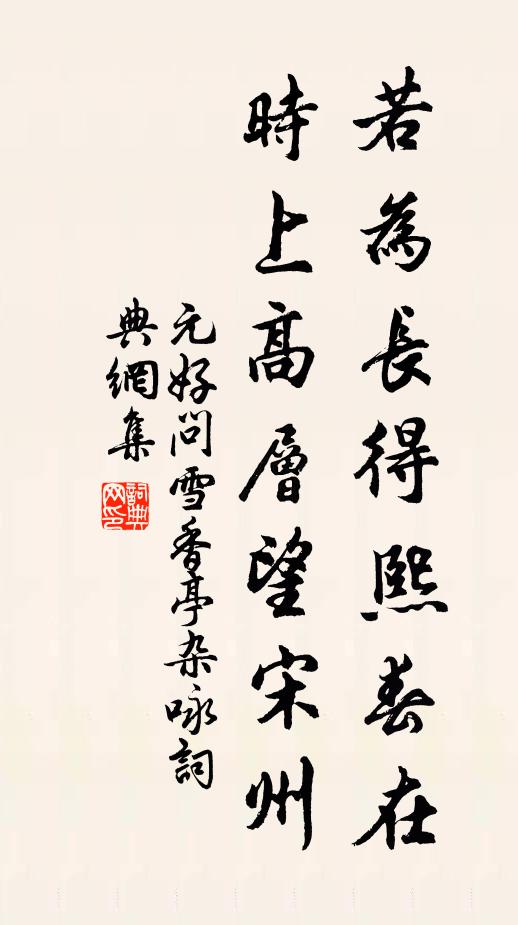 若為長得熙春在
時上高層望宋州
元好問雪香亭杂咏詞
典網集
詞典网印